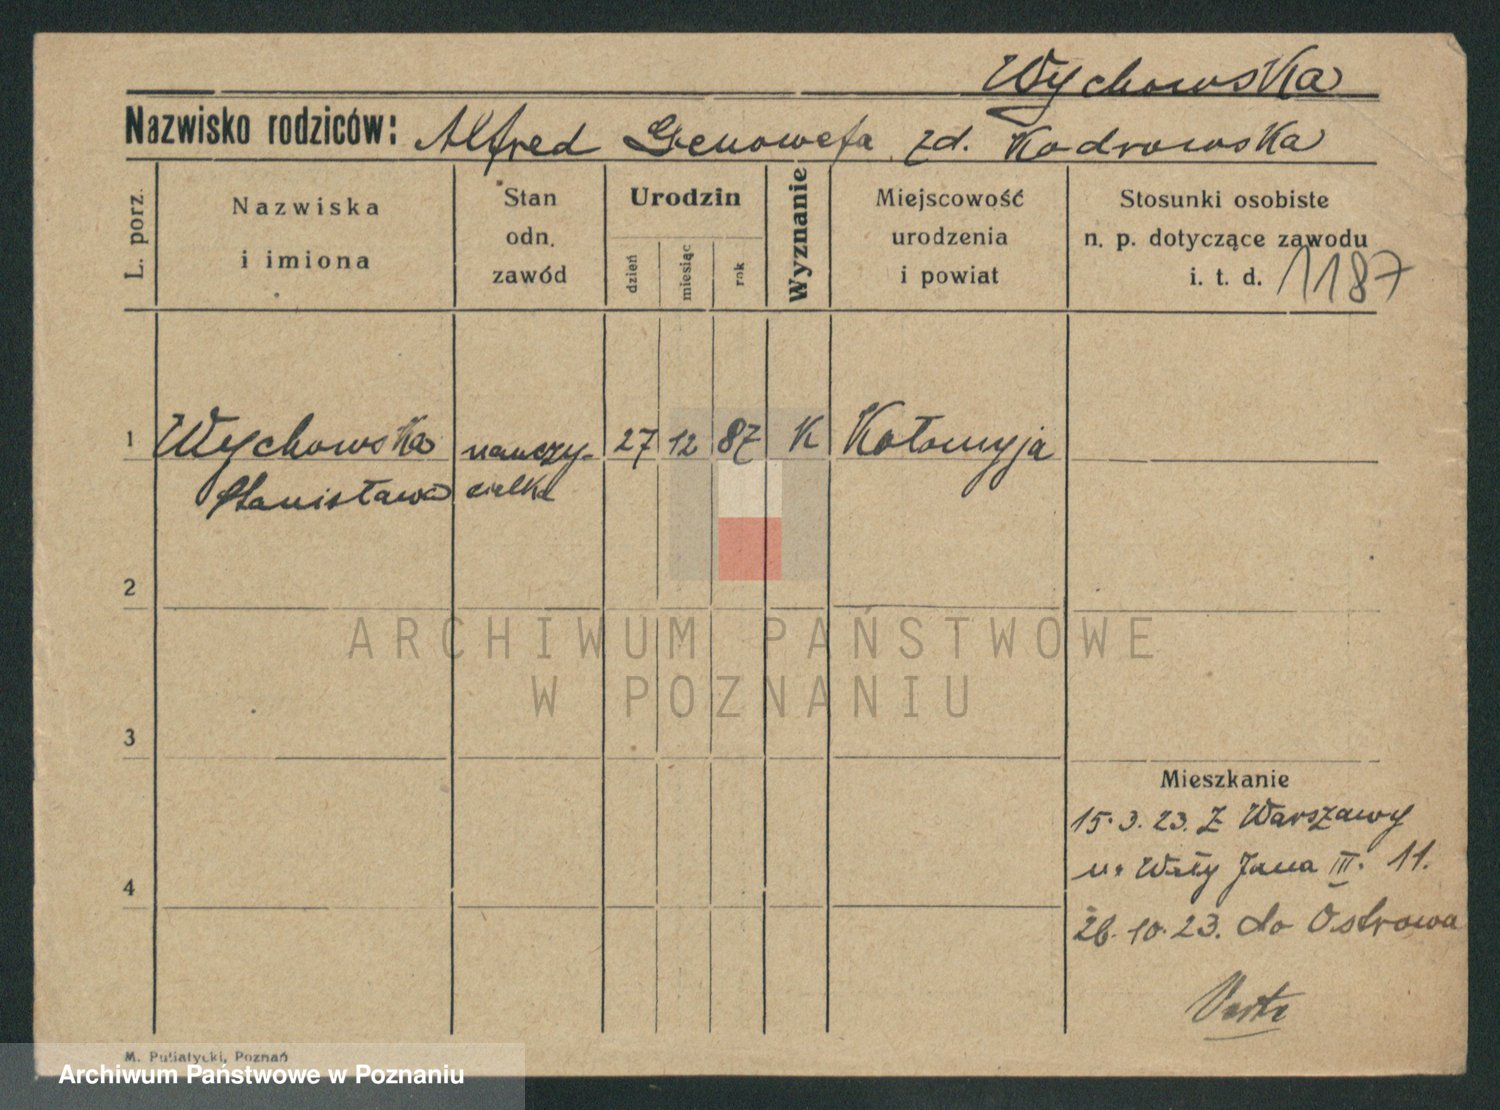 Wychowska
Nazwisko rodziców: Alfred Genowefa zd. Kodrowska
L. porz.
Nazwiska
i imiona
Stan
odn.
zawód
Urodzin
dzień
miesiąc
rok
Wyznanie
Miejscowość
urodzenia
i powiat
Stosunki osobiste
n. p. dotyczące zawodu
i. t. d. 1187
1 Wychowska nauczy- 27 12 87 K Kołomyja
Stanisława cielka
2
3
4
Mieszkanie
15.3.23. Z Warszawy
Wały Jana III. 11.
26.10.23. do Ostrowa
M. Putiatycki, Poznań
ARCHIWUM PAŃSTWOWE
W POZNANIU
Archiwum Państwowe w Poznaniu